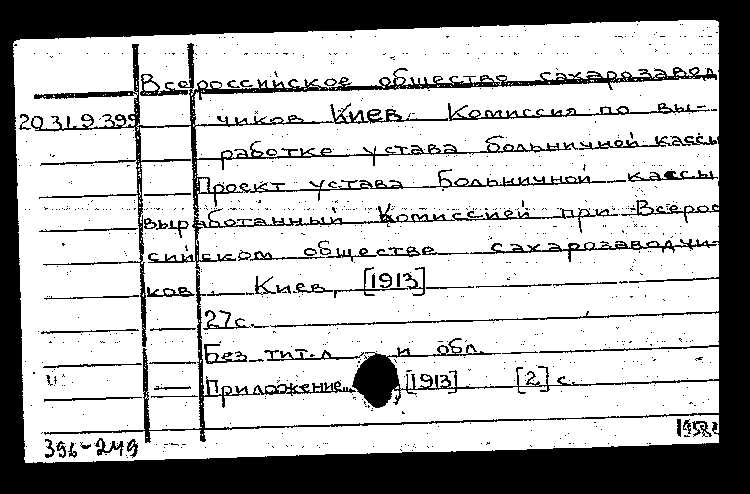 Всероссийское общество сахарозавод
20.31.9.399 чиков Киев. Комиссия по вы-
работке устава больничной кассы
Проект устава Больничной кассы,
выработанный Комиссией при Всерос
сийском обществе сахарозаводчи-
ков. Киев, [1913]
27 с.
Без тит. л. и обл.
" — Приложение... , [1913] [2] с.
396-249